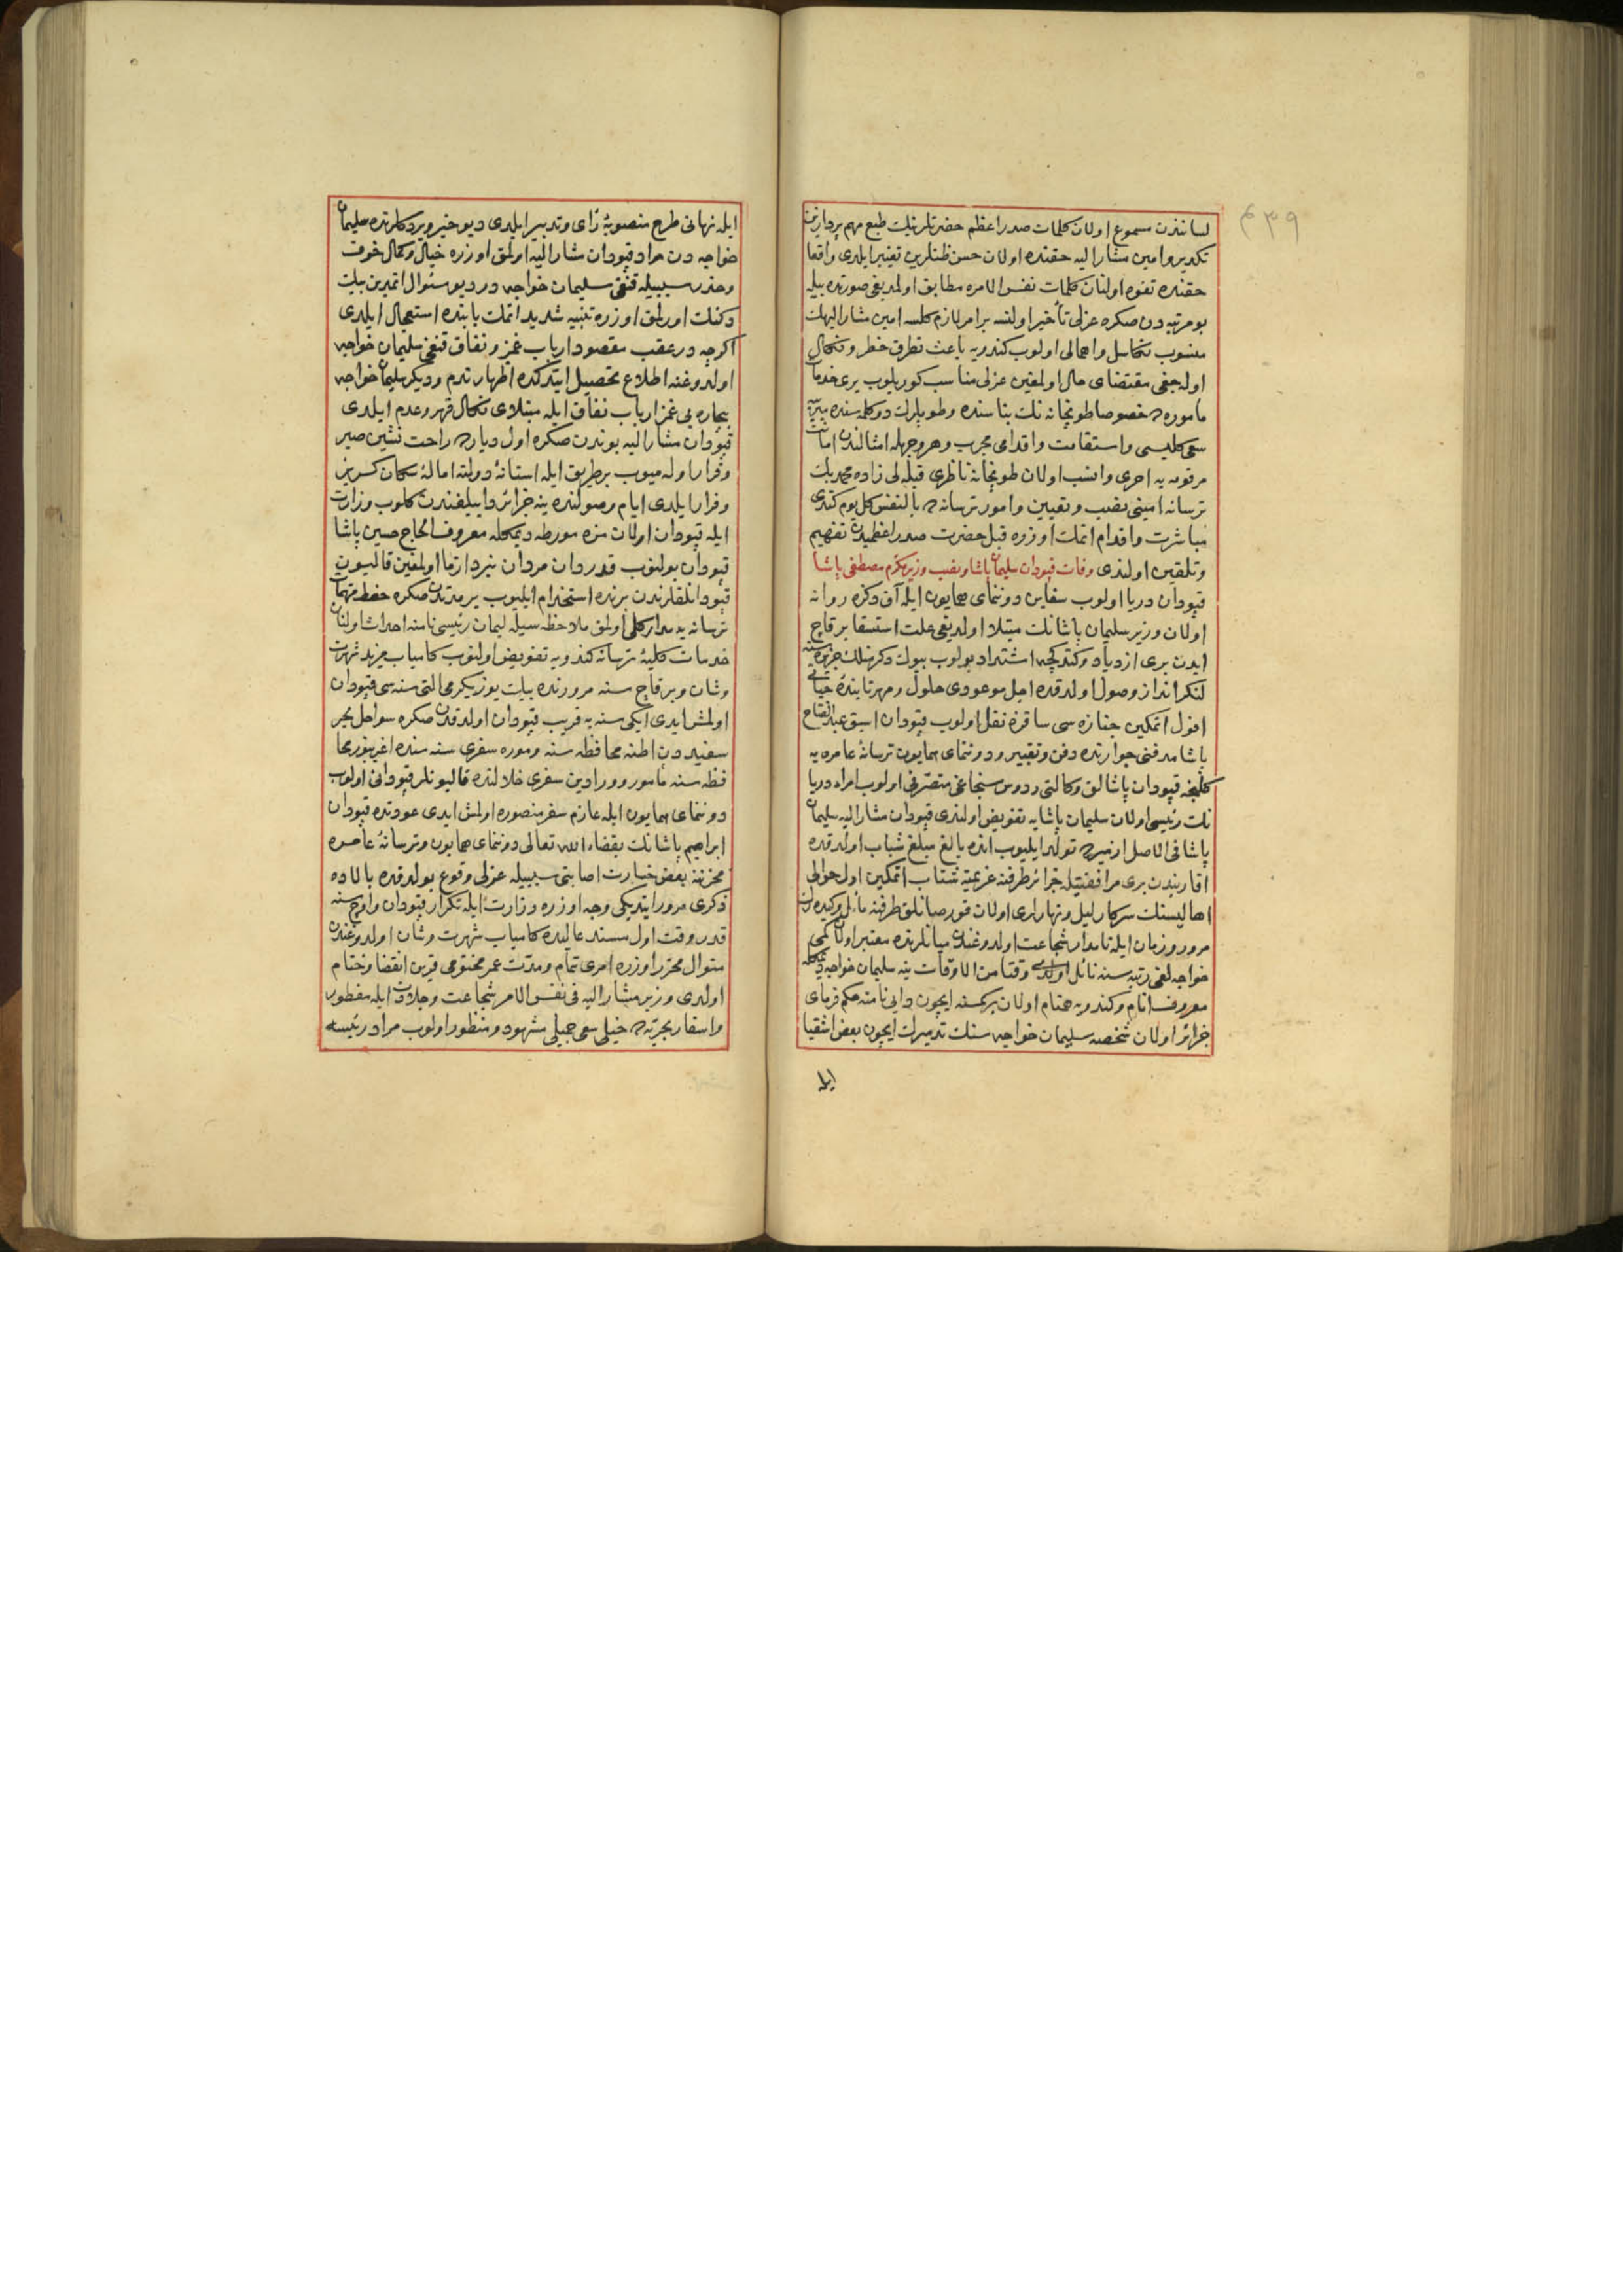 ۴۳۹
لسانندن مسموع اولان کلمات صدر اعظم حضرتلرینک طبع مهم پردازین
تکدیر و امین مشار الیه حقنده اولان حسن ظنلرین تغییر ایلدی واقعا
حقنده تفوه اولنان کلمات نفس الامره مطابق اولمدیغی صورتده بیله
بو مرتبه دن صکره عزلی تأخیر اولنسه بر امر لازم کلسه امین مشار الیهک
منسوب تکاسل و اهمالی اولوب کندویه باعث تطرق خطر و نکال
اوله جغی مقتضای حال اولمغین عزلی مناسب کوریلوب یری خدمات
مأموره ده خصوصا طوبخانه نک بناسنده و طوپلرک دوکلمه سنده
سعی کلیسی و استقامت و اقدامی مجرب و هر وجهله امثالندن امانت
مرقومه یه احری و انسب اولان طوبخانه ناظری قبله لی زاده محمد بک
ترسانه امینی نصب و تعیین و امور ترسانه ده بالنفس کل یوم کندی
مباشرت و اقدام اتمک اوزره قبل حضرت صدر اعظمیدن تفهیم
و تلقین اولندی وفات قپودان سلیمان پاشا و نصب وزیر مکرم مصطفی پاشا
قپودان دریا اولوب سفاین دوننمای همایون ایله آق دکزه روانه
اولان وزیر سلیمان پاشانک مبتلا اولدیغی علت استسقا بر قاچ
ایدن بری ازدیاد و کتدکجه اشتداد بولوب بیوک دکرمنلک جزیره سنه
لنکر انداز وصول اولدقده اجل موعودی حلول و مهر تابنده حیاتی
افول اتمکین جنازه سی ساقزه نقل اولوب قپودان اسبق عبد الفتاح
پاشا مدفنی جوارنده دفن و تقبیر و دوننمای همایون ترسانهٔ عامره یه
کلنجه قپودان پاشالق وکالتی ردوس سنجاغی متصرفی اولوب امراء دریا
نک رئیسی اولان سلیمان پاشایه تفویض اولندی قپودان مشار الیه سلیمان
پاشا فی الاصل ازمیرده تولد ایلیوب انده بالغ مبلغ شباب اولدقده
اقاربندن بری مرافقتیله جزائر طرفنه عزیمته شتاب اتمکین اول حوالی
اهالیسنک سرکار لیل و نهارلری اولان قورصانلق طرفنه مائل و کیده رک
مرور و زمان ایله نامدار شجاعت اولدوغندن میانلرنده معتبر اولان کمی
خواجه لغی رتبه سنه نائل اولدی وقتا من الاوقات ینه سلیمان خواجه دیمکله
معروف انام و کندویه همنام اولان برکسنه ایچون دایی نامنه حکم فرمای
جزائر اولان شخصه سلیمان خواجه سنک تدمیرک ایچون بعض اشقیا
ایله
ایله نهانی طرح منصوبهٔ رأی و تدبیر ایلدی دیو خبر ویردکلرنده سلیمان
خواجه دن مراد قپودان مشار الیه اولمق اوزره خیال و کمال خوف
و حذر سببیله قنغی سلیمان خواجه در دیو سئوال اتمدین بیک
دکنک اورلمق اوزره تنبیه شدید اتمک بابنده استعجال ایلدی
اکرچه در عقب مقصود ارباب غمز و نفاق قنغی سلیمان خواجه
اولدوغنه اطلاع تحصیل ایتدکده اظهار ندم و دیکر سلیمان خواجه
بیچاره یی غمز ارباب نفاق ایله مبتلای نکال قهر و عدم ایلدی
قپودان مشار الیه بوندن صکره اول دیارده راحت نشین صبر
و قرار اوله میوب بر طریق ایله استانهٔ دولته امالهٔ سکان کریز
و فرار ایلدی ایام وصولنده ینه جزائر داییلغندن کلوب وزارت
ایله قپودان اولان مزه مورطه دیمکله معروف الحاج حسین پاشا
قپودان بولنوب قدردان مردان نبرد ازما اولمغین قالیون
قپودانلقلرندن برنده استخدام ایلیوب بر مدتدن صکره حفظ مهمات
ترسانه یه مدار کلی اولمق ملاحظه سیله لیمان رئیسی نامنه احداث اولنان
خدمات کلیهٔ ترسانه کندویه تفویض اولنوب کامیاب مزید شهرت
و شان و بر قاچ سنه مرورنده بیک یوز یکرمی التی سنه سی قپودان
اولمش ایدی ایکی سنه یه قریب قپودان اولدقدن صکره سواحل بحر
سفیددن اطنه محافظه سنه و موره سفری سنه سنده اغریبوز محا
فظه سنه مأمور و ورادین سفری خلالنده قالیونلر قپودانی اولوب
دوننمای همایون ایله عازم سفر منصوره اولمش ایدی عودتده قپودان
ابراهیم پاشانک بقضاء الله تعالی دوننمای همایون و ترسانهٔ عامره
مخزننه بعض خسارت اصابتی سببیله عزلی وقوع بولدقده بالاده
ذکری مرور ایتدیکی وجه اوزره وزارت ایله تکرار قپودان و اوچ سنه
قدر وقت اول مسند عالیده کامیاب شهرت و شان اولدوغندن
منوال محرر اوزره امری تمام و مدت عمر مختومی قرین انقضا و ختام
اولدی وزیر مشار الیه فی نفس الامر شجاعت و جلادت ایله مفطور
و اسفار بحریه ده خیلی سعی جمیلی مشهود و منظور اولوب مراد رئیسه